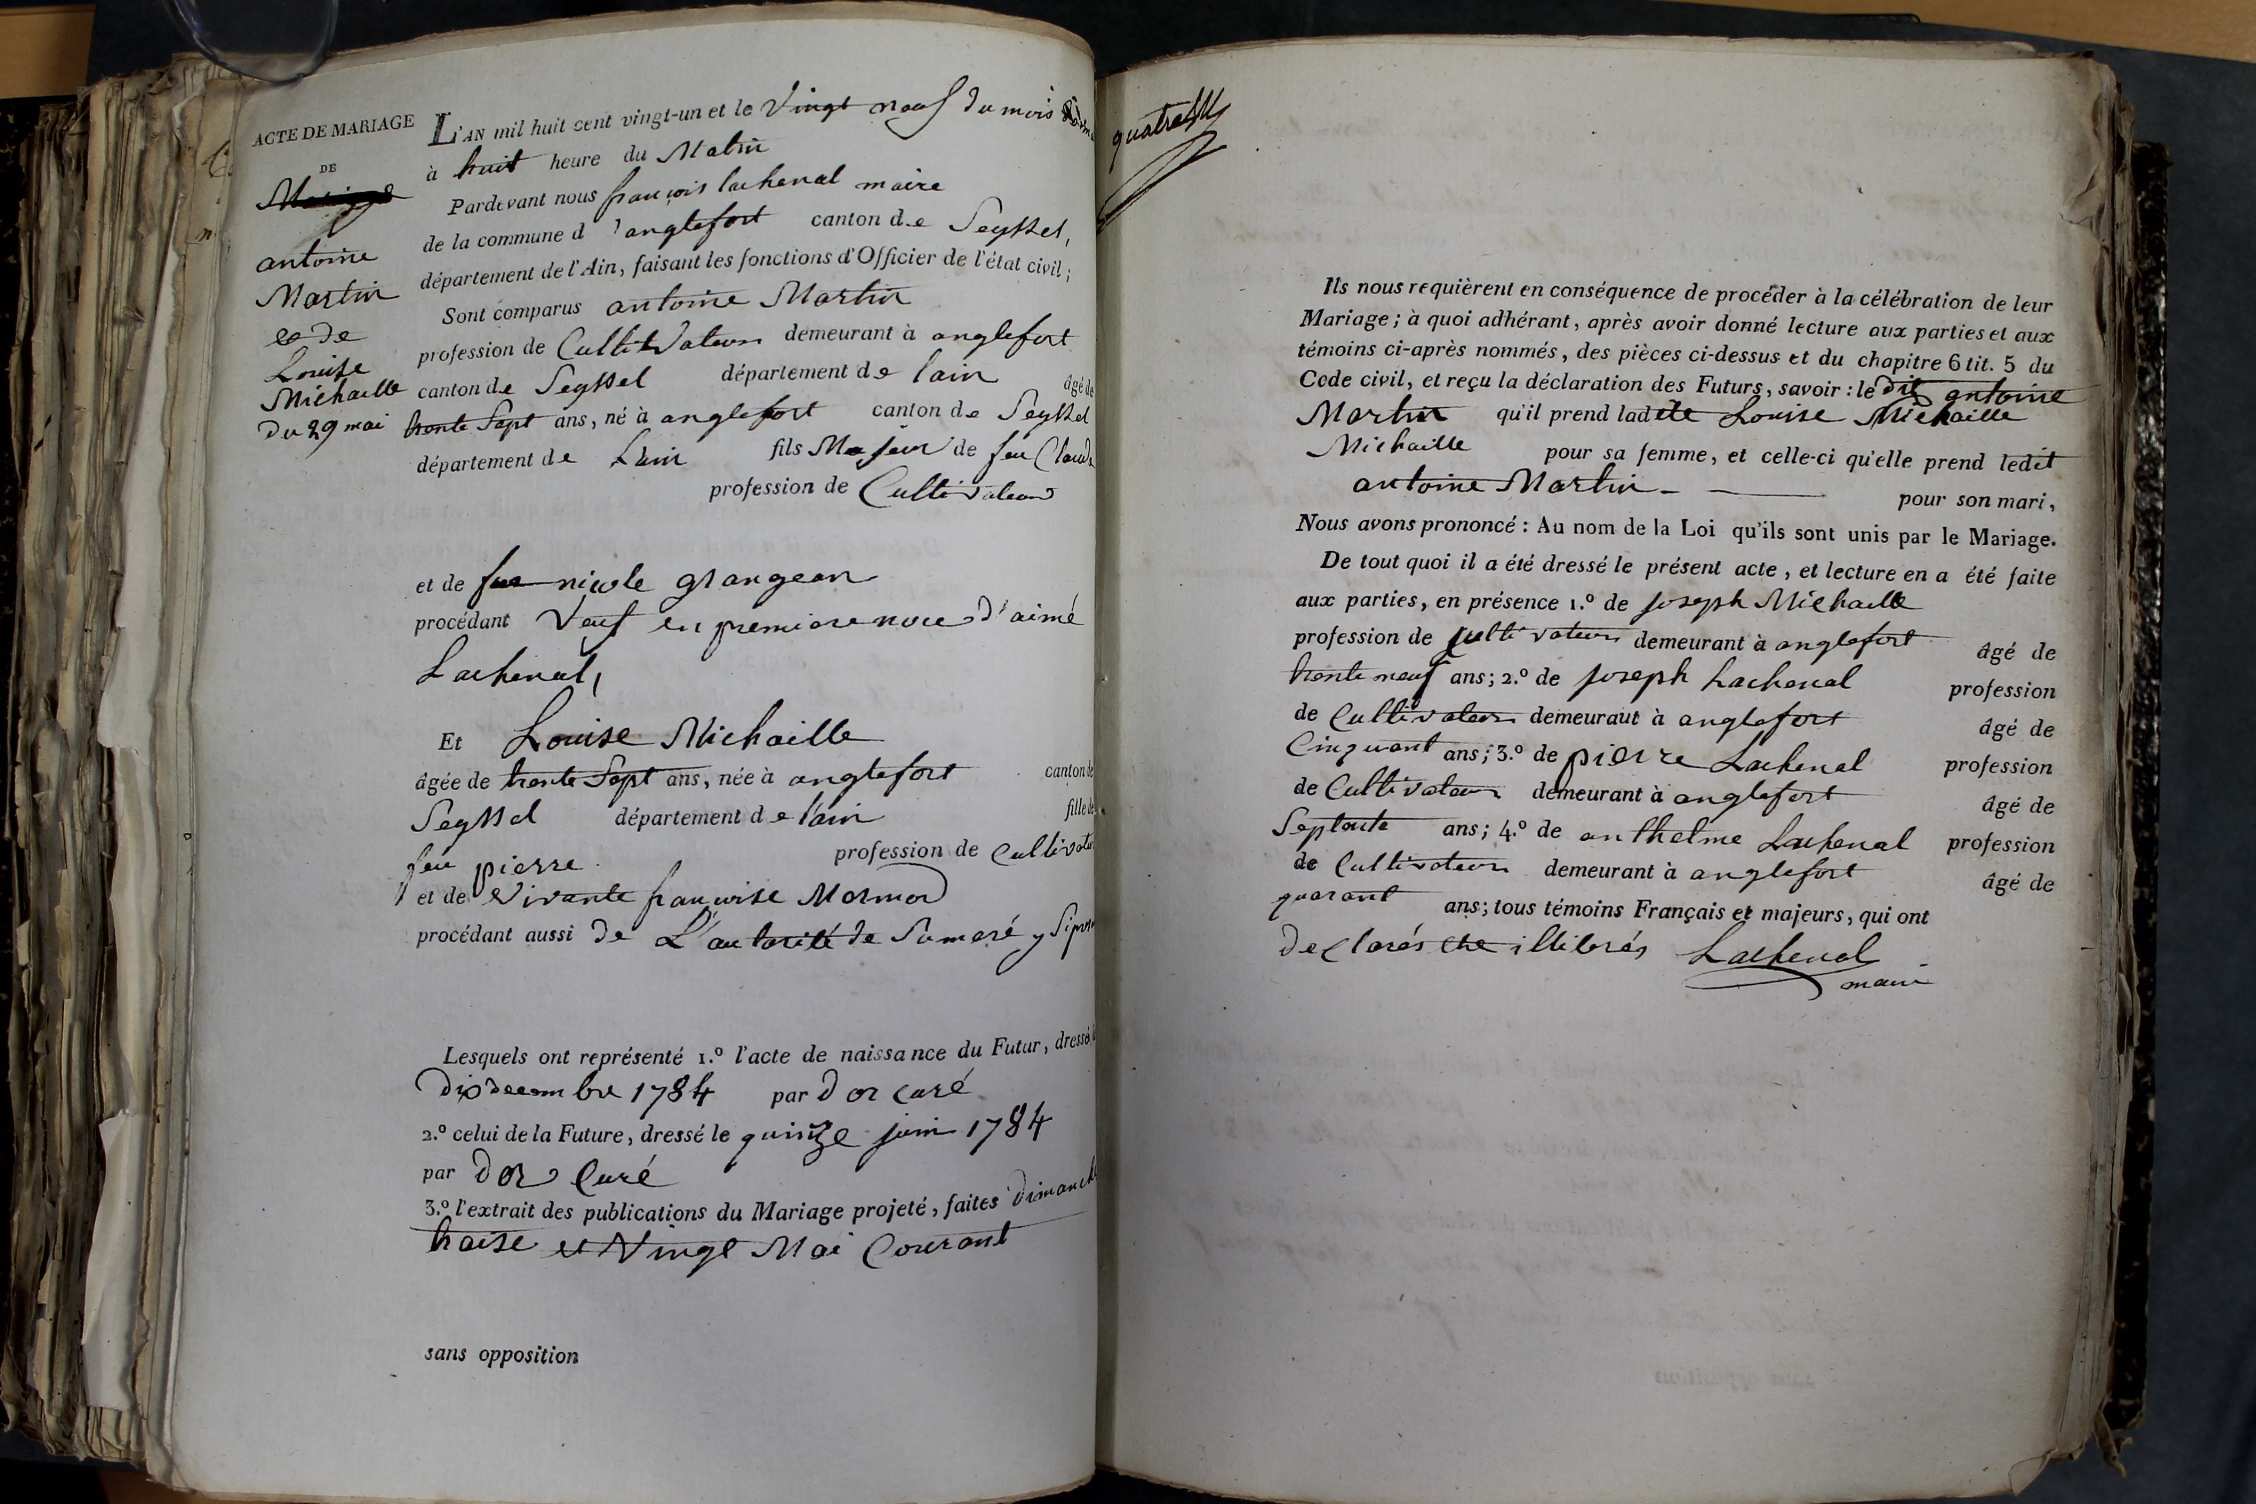 ACTE DE MARIAGE
DE
antoine
Martin
et de
Louise
Michaille
du 29 mai
L'AN mil huit cent vingt-un et le Vingt neuf du mois
à huit heure du Matin
Pardevant nous françois lachenal maire
de la commune d'anglefort canton de Seyssel,
département de l'Ain, faisant les fonctions d'Officier de l'état civil;
Sont comparus antoine Martin
profession de Cultivateur demeurant à anglefort
canton de Seyssel département de lain âgé de
trente Sept ans, né à anglefort canton de Seyssel
département de Lain fils Majeur de feu Claude
profession de Cultivateur
et de feue nicole grangean
procédant Veuf en premiere noce d'aimé
Lachenal,
Et Louise Michaille
âgée de trente Sept ans, née à anglefort canton de
Seyssel département de lain fille de
feu pierre profession de Cultivateur
et de Vivante françoise Mormod
procédant aussi de L'autorité de Sameré y
Lesquels ont représenté 1.º l'acte de naissance du Futur, dressé
dix decembre 1784 par dor curé
2.º celui de la Future, dressé le quinze juin 1784
par dor Curé
3.º l'extrait des publications du Mariage projeté, faites dimanche
traise et Vingt Mai Courant
sans opposition
Ils nous requièrent en conséquence de procéder à la célébration de leur
Mariage; à quoi adhérant, après avoir donné lecture aux parties et aux
témoins ci-après nommés, des pièces ci-dessus et du chapitre 6 tit. 5 du
Code civil, et reçu la déclaration des Futurs, savoir: le dit antoine
Martin qu'il prend ladite Louise Michaille
Michaille pour sa femme, et celle-ci qu'elle prend ledit
antoine Martin pour son mari,
Nous avons prononcé: Au nom de la Loi qu'ils sont unis par le Mariage.
De tout quoi il a été dressé le présent acte, et lecture en a été faite
aux parties, en présence 1.º de joseph Michaille
profession de Cultivateur demeurant à anglefort âgé de
trente neuf ans; 2.º de joseph Lachenal profession
de Cultivateur demeurant à anglefort âgé de
Cinquant ans; 3.º de pierre Lachenal profession
de Cultivateur demeurant à anglefort âgé de
Septante ans; 4.º de anthelme Lachenal profession
de Cultivateur demeurant à anglefort âgé de
quarant ans; tous témoins Français et majeurs, qui ont
declarés etre illiterés Lachenal
maire